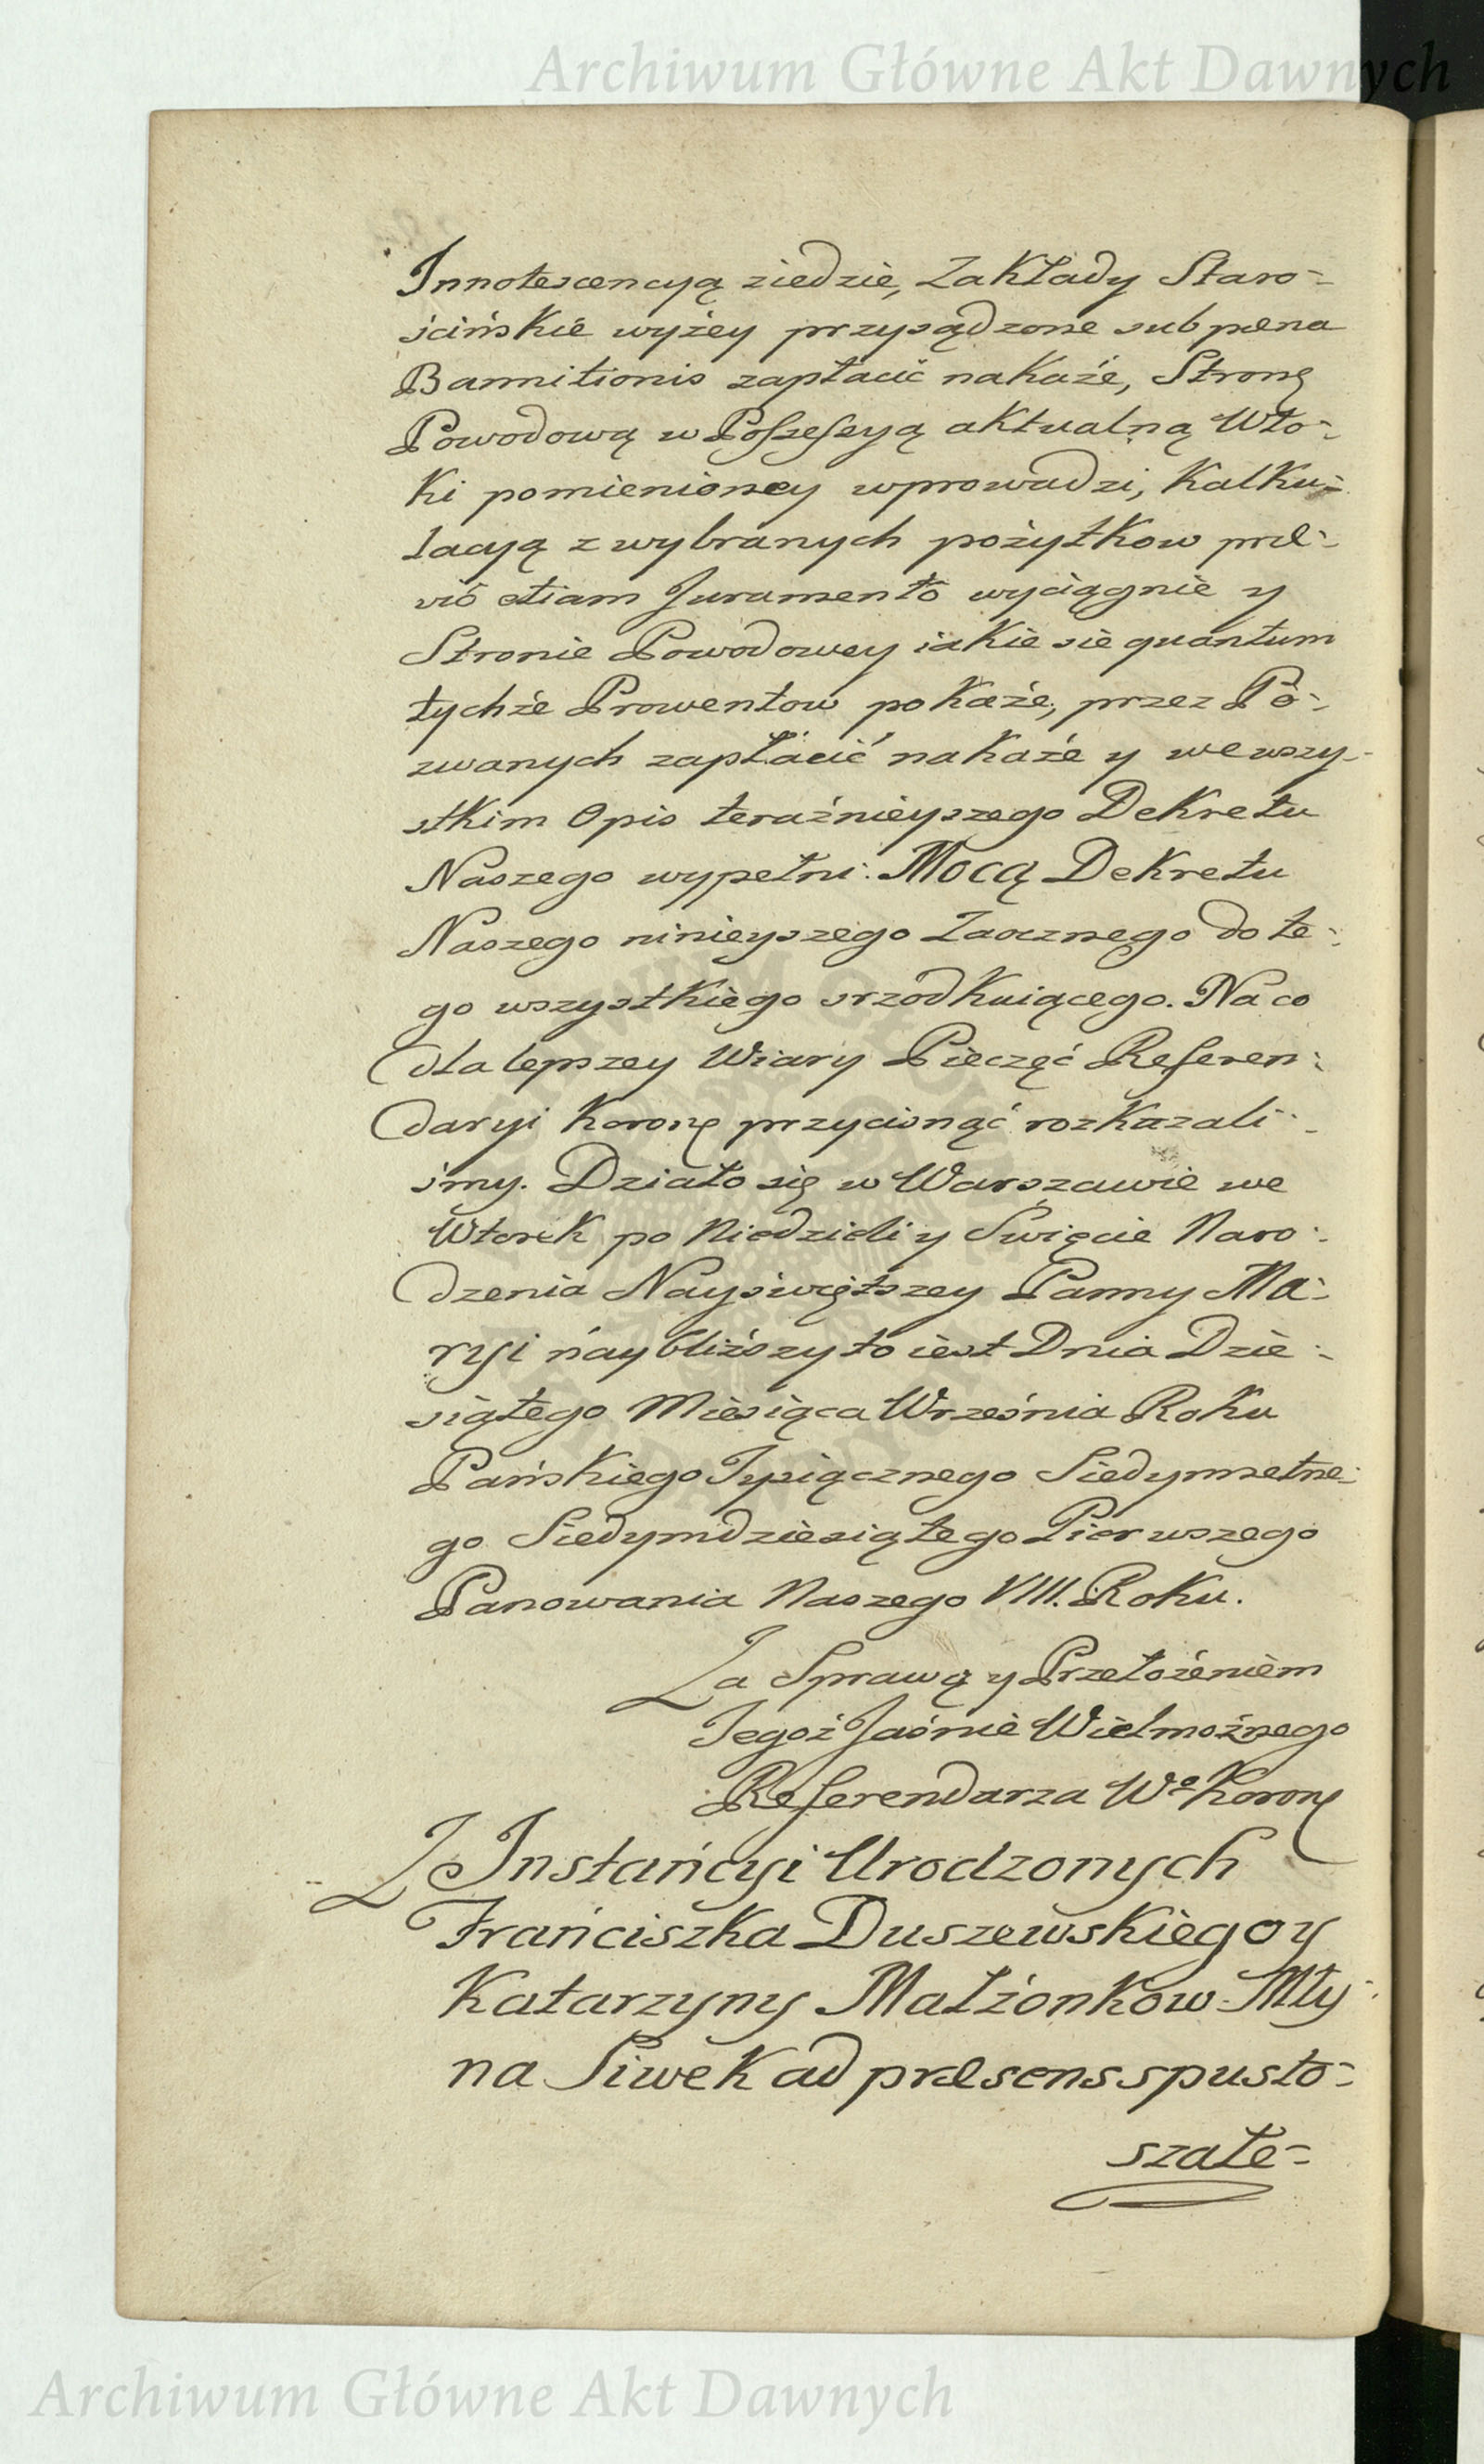 Archiwum Główne Akt Dawnych
Innotescencyą ziedzie, Zakłady Staro-
ścińskie wyżey przysądzone sub pæna
Bannitionis zapłacić nakaże, Stronę
Powodową w Possessyą aktualną Wło-
ki pomienioney wprowadzi, Kalku-
lacyą z wybranych pożytkow præ-
vio etiam Juramento wyciągnie y
Stronie Powodowey iakie sie quantum
tychże Prowentow pokaże, przez Po-
zwanych zapłacić nakaże y we wszy-
stkim Opis teraźnieyszego Dekretu
Naszego wypełni: Mocą Dekretu
Naszego ninieyszego Zaocznego do te-
go wszystkiego srzodkuiącego. Na co
dla lepszey Wiary Pieczęć Referen-
daryi Koronę przycisnąć rozkazali-
śmy. Działo się w Warszawie we
Wtorek po Niedzieli y Swięcie Naro-
dzenia Nayświętszey Panny Ma-
ryi naybliższy to iest Dnia Dzie-
siątego Miesiąca Września Roku
Pańskiego Tysiącznego Siedymsetne-
go Siedymdziesiątego Pierwszego
Panowania Naszego VIII. Roku.
Za Sprawą y Przełożeniem
Tegoż Jaśnie Wielmożnego
Referendarza Wo Koronę
Z Instańcyi Urodzonych
Frańciszka Duszewskiego y
Katarzyny Małżonkow Mły-
na Siwek ad præsens spusto-
szałe-
Archiwum Główne Akt Dawnych